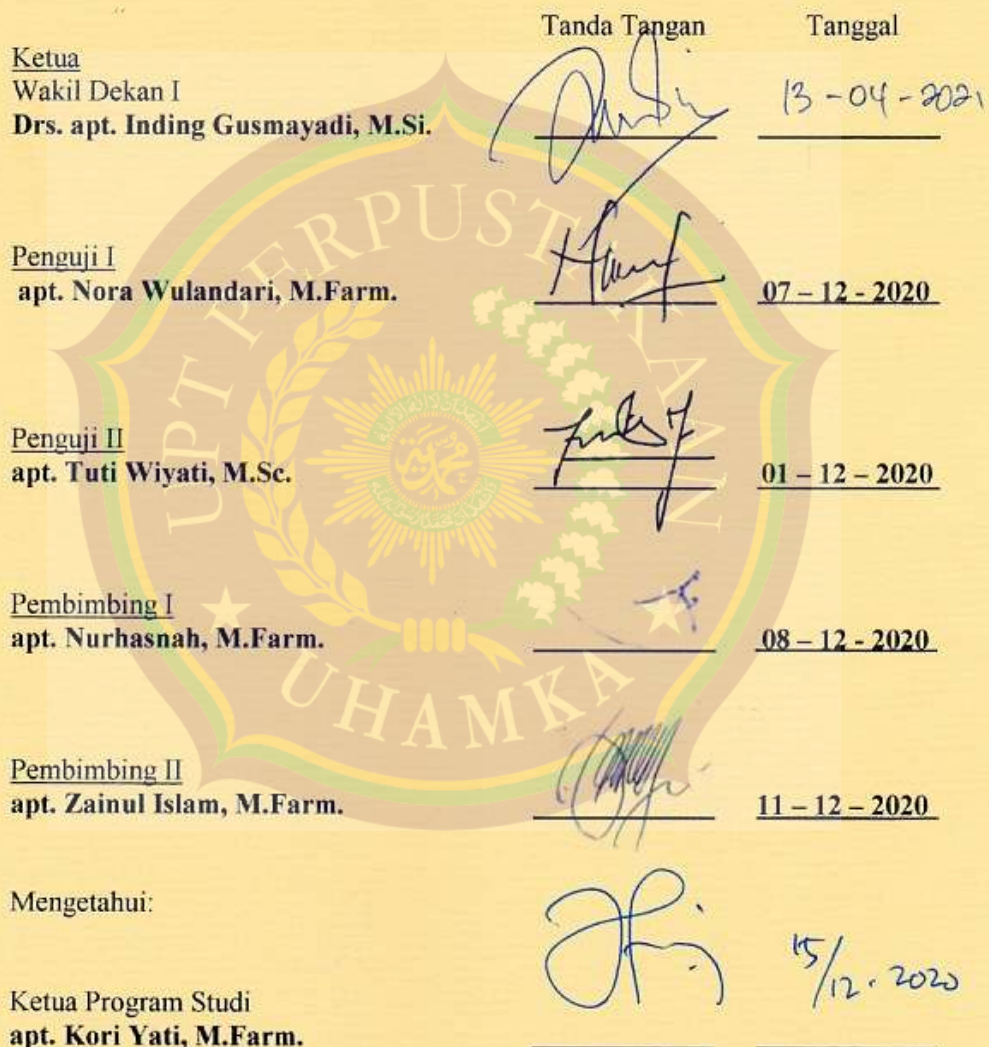 Tanda Tangan Tanggal
Ketua
Wakil Dekan I
Drs. apt. Inding Gusmayadi, M.Si. 13 - 04 - 2021
Penguji I
apt. Nora Wulandari, M.Farm. 07 – 12 - 2020
Penguji II
apt. Tuti Wiyati, M.Sc. 01 – 12 – 2020
Pembimbing I
apt. Nurhasnah, M.Farm. 08 – 12 - 2020
Pembimbing II
apt. Zainul Islam, M.Farm. 11 – 12 – 2020
Mengetahui:
15/12 - 2020
Ketua Program Studi
apt. Kori Yati, M.Farm.
UPT PERPUSTAKAAN
UHAMKA